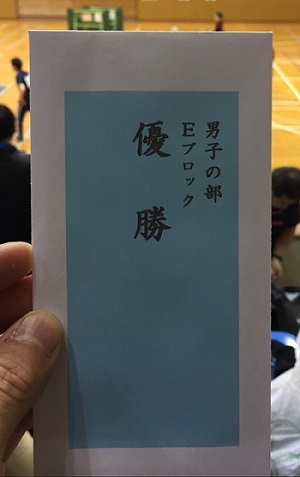 男子の部
Eブロック
優勝